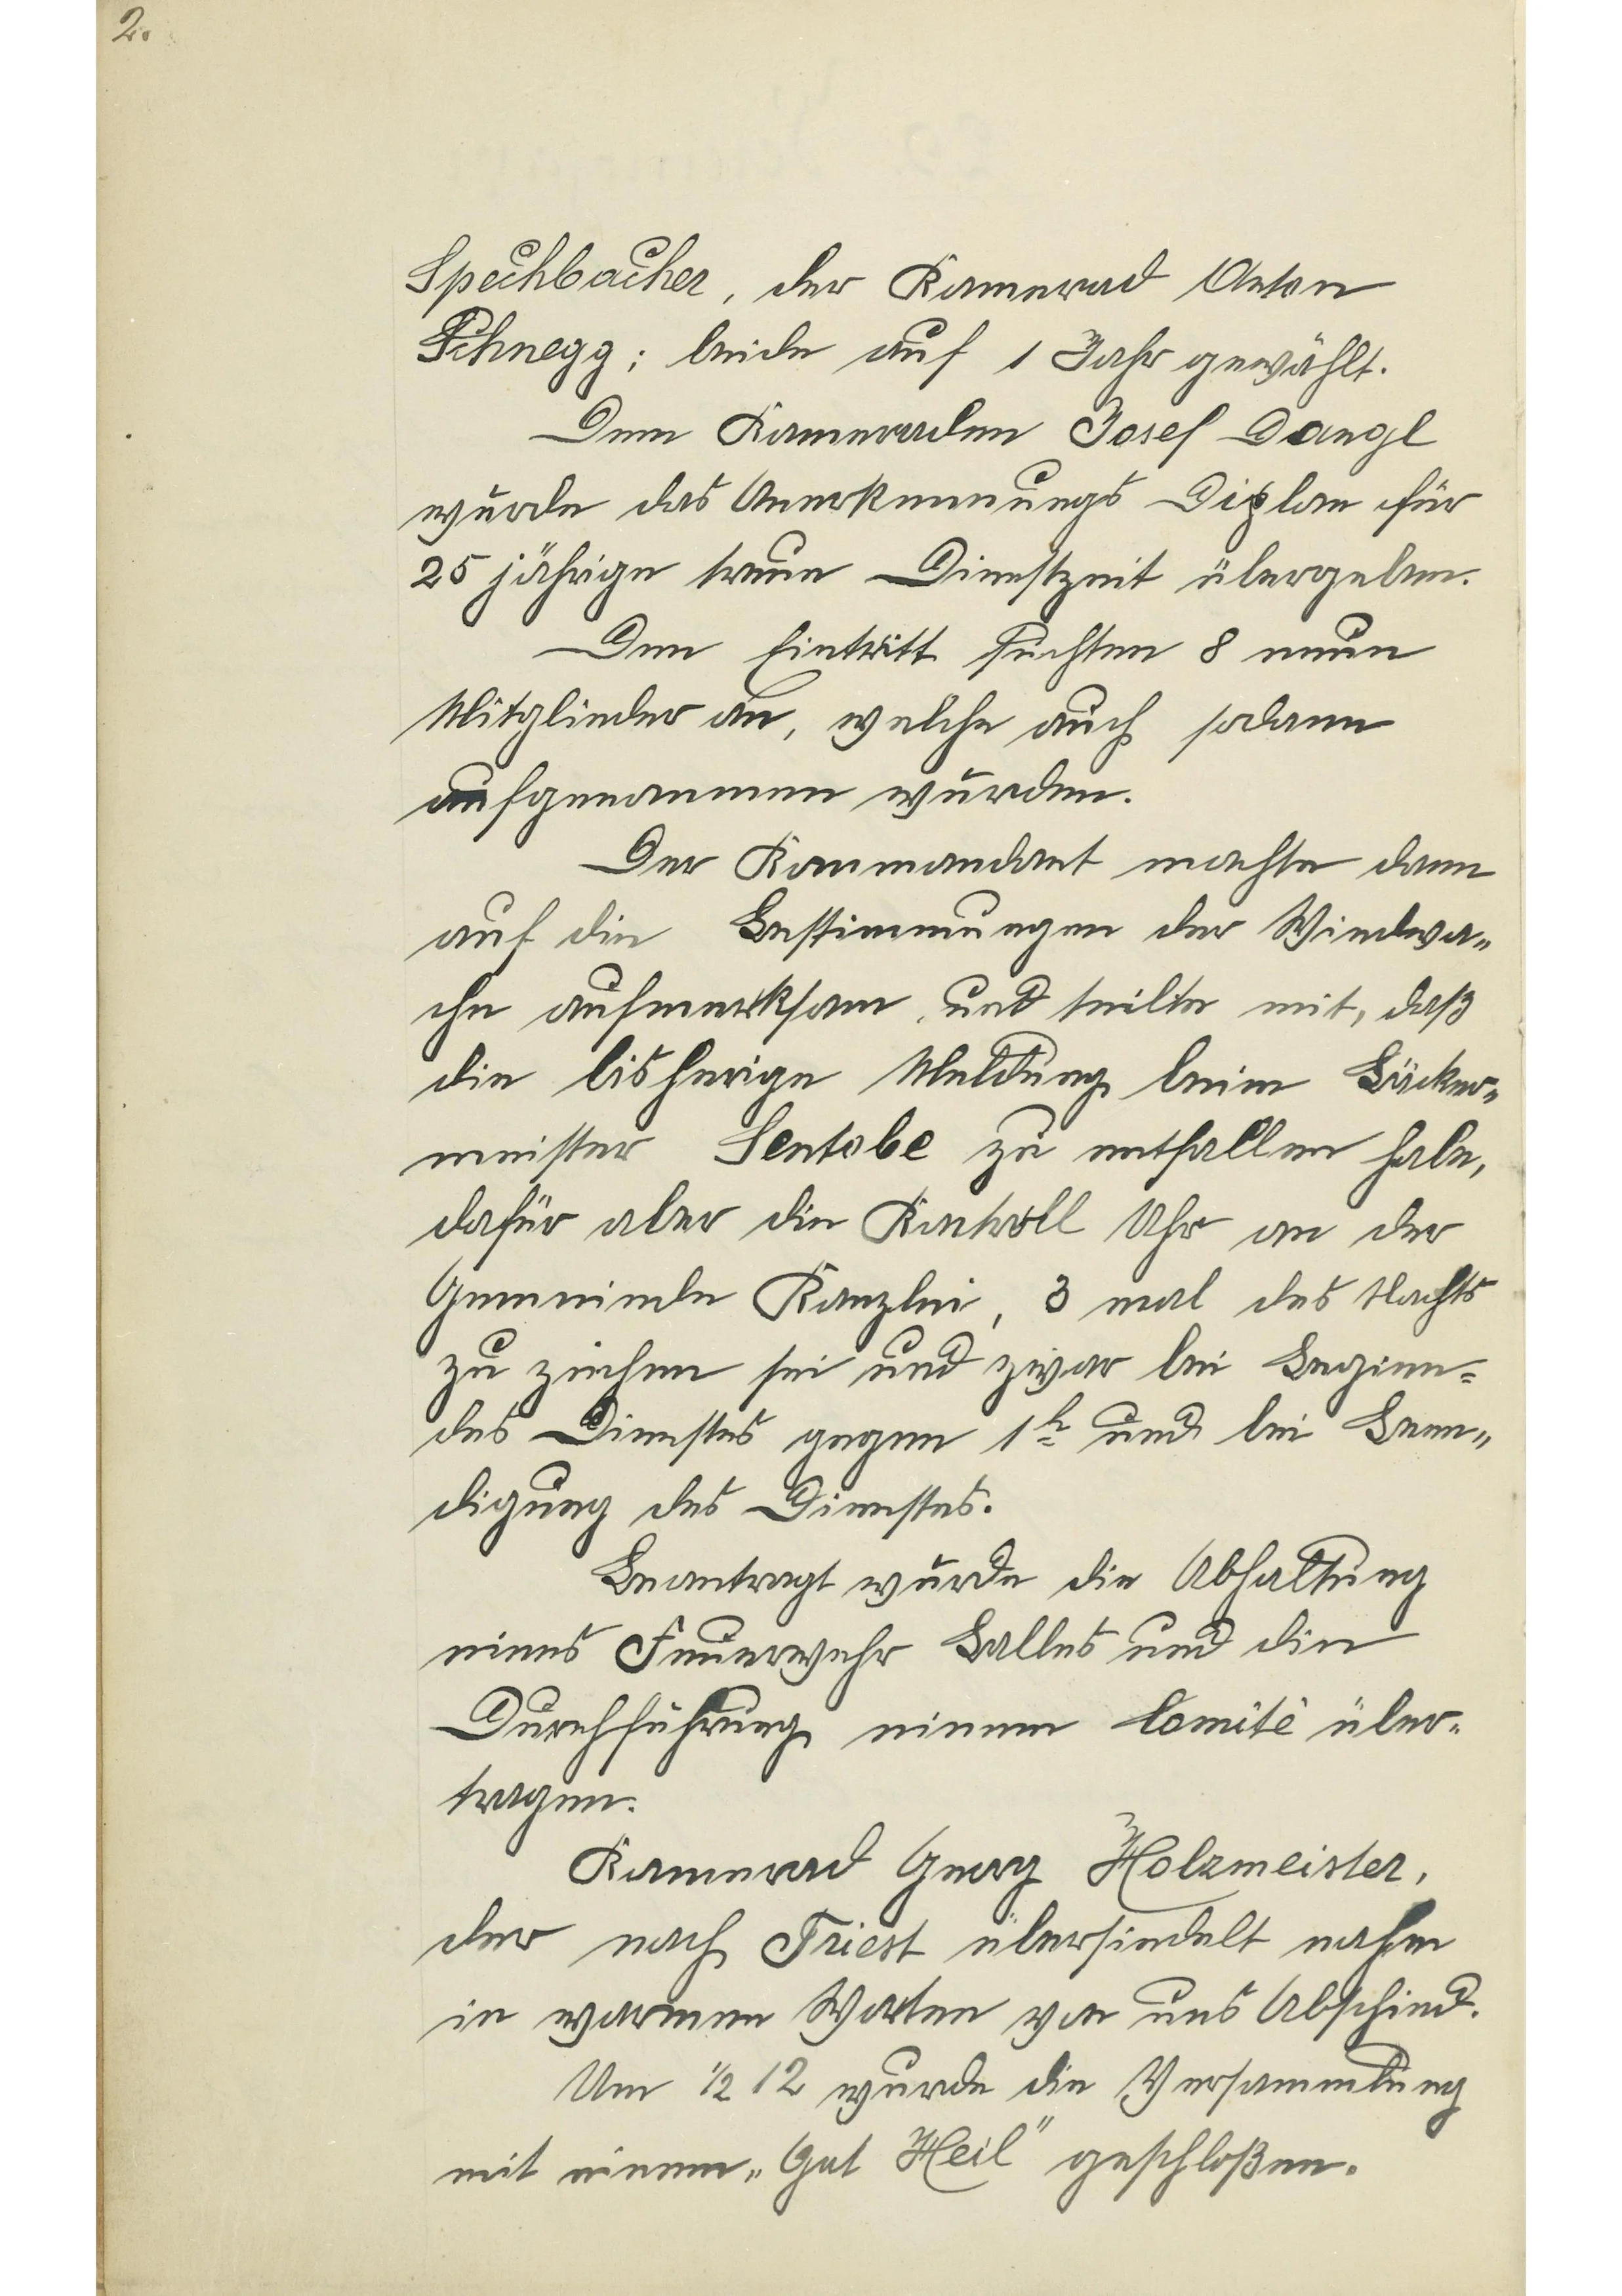 2.
Spechbacher, der Kamerad Anton
Schnegg; beide auf 1 Jahr gewählt.
Dem Kameraden Josef Dangl
wurde das Anerkennungs Diplom für
25 jährige treue Dienstzeit übergeben.
Den Eintritt suchten 8 neue
Mitglieder an, welche auch sodann
aufgenommen wurden.
Der Kommandant machte dann
auf die Bestimmungen der Windwa=
che aufmerksam und teilte mit, daß
die bisherige Meldung beim Bäcker=
meister Sentobe zu entfallen habe,
dafür aber die Kontroll Uhr an der
Gemeinde Kanzlei, 3 mal des Nachts
zu ziehen sei und zwar bei Beginn=
des Dienstes gegen 1h und bei Been=
digung des Dienstes.
Beantragt wurde die Abhaltung
eines Feuerwehr Balles und die
Durchführung einem Comité über=
tragen.
Kamerad Georg Holzmeister,
der nach Triest übersiedelt nahm
in warmen Worten von uns Abschied.
Um ½ 12 wurde die Versammlung
mit einem „Gut Heil" geschloßen.